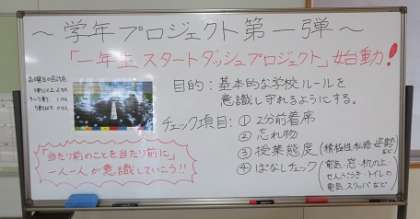 ～学年プロジェクト第一弾～
「一年生スタートダッシュプロジェクト」始動！
目的：基本的な学校ルールを
意識し守れるようにする。
チェック項目：① 2分前着席
② 忘れ物
③ 授業態度（積極性、私語、姿勢など）
④ はなしチェック（電気、窓、机の上
せんぷうき・トイレの
電気 スリッパなど）
「当たり前のことを当たり前に」
一人一人が意識していこう!!